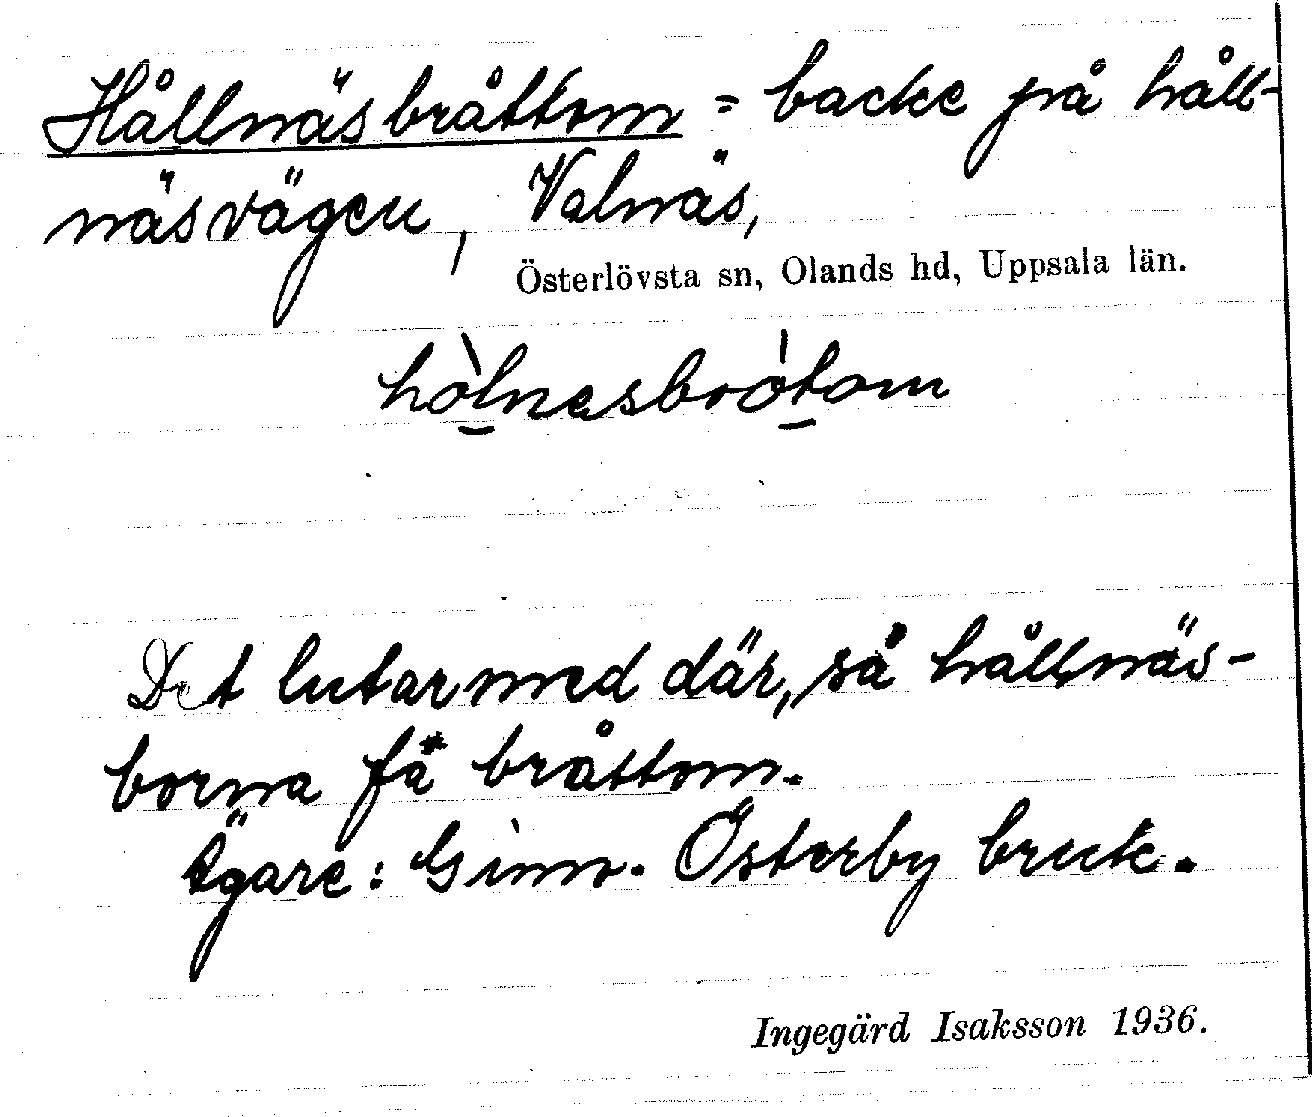 Hållnäsbråttom = backe på håll-
näsvägen, Valnäs,
Österlövsta sn, Olands hd, Uppsala län.
hòlnesbrótom
Det lutar ned där, så hållnäs-
borna få bråttom.
Ägare: Gimo. Österby bruk.
Ingegärd Isaksson 1936.